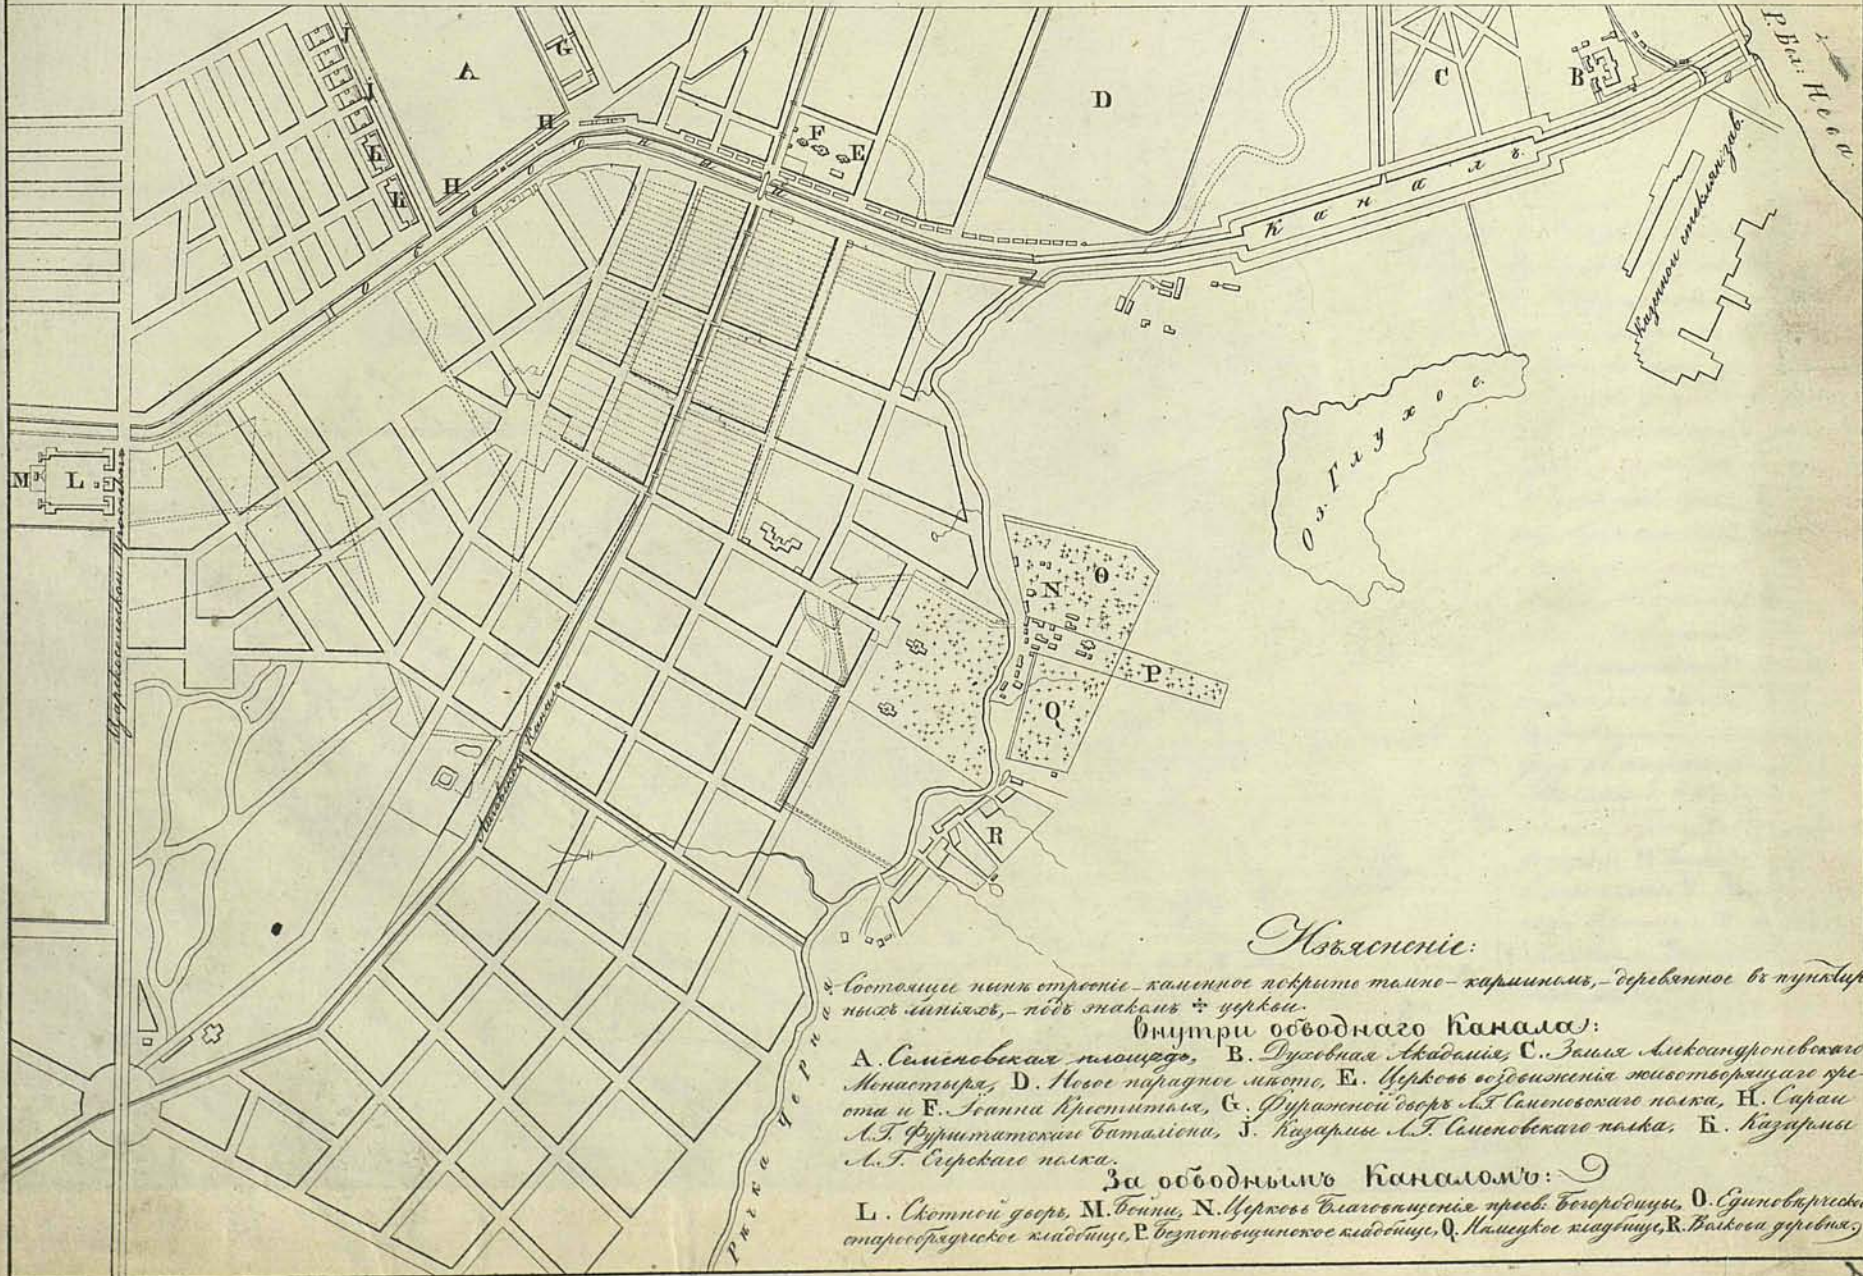 A
G
J
J
H
H
Б
Б
F
E
D
C
B
Р. Бол: Нева
Обводной Каналъ
Казенной стеклян: зав.
Оз. Глухое.
M
L
Царскосельской Проспектъ
Лиговской Каналъ
N
O
P
Q
R
Рѣчка Черная
Изъясненіе:
Состоящее нынѣ строеніе – каменное покрыто темно – карминомъ, – деревянное въ пунктир
ныхъ линіяхъ, – подъ знакомъ ÷ церкви.
Внутри обводнаго Канала:
A. Семеновская площадь, B. Духовная Академія, C. Земля Александроневскаго
Монастыря, D. Новое парадное мѣсто, E. Церковь воздвиженія животворящаго кре-
ста и F. Іоанна Крестителя, G. Фуражной дворъ Л.Г. Семеновскаго полка, H. Сараи
Л.Г. Фурштатскаго Баталіона, J. Казармы Л.Г. Семеновскаго полка, Б. Казармы
Л.Г. Егерскаго полка.
За обводнымъ Каналомъ:
L. Скотной дворъ, M. Бойни, N. Церковь Благовещенія пресв: Богородицы, O. Единоверческо
старообрядческое кладбище, P. Безпоповщинское кладбище, Q. Намецкое кладбище, R. Волкова деревня.